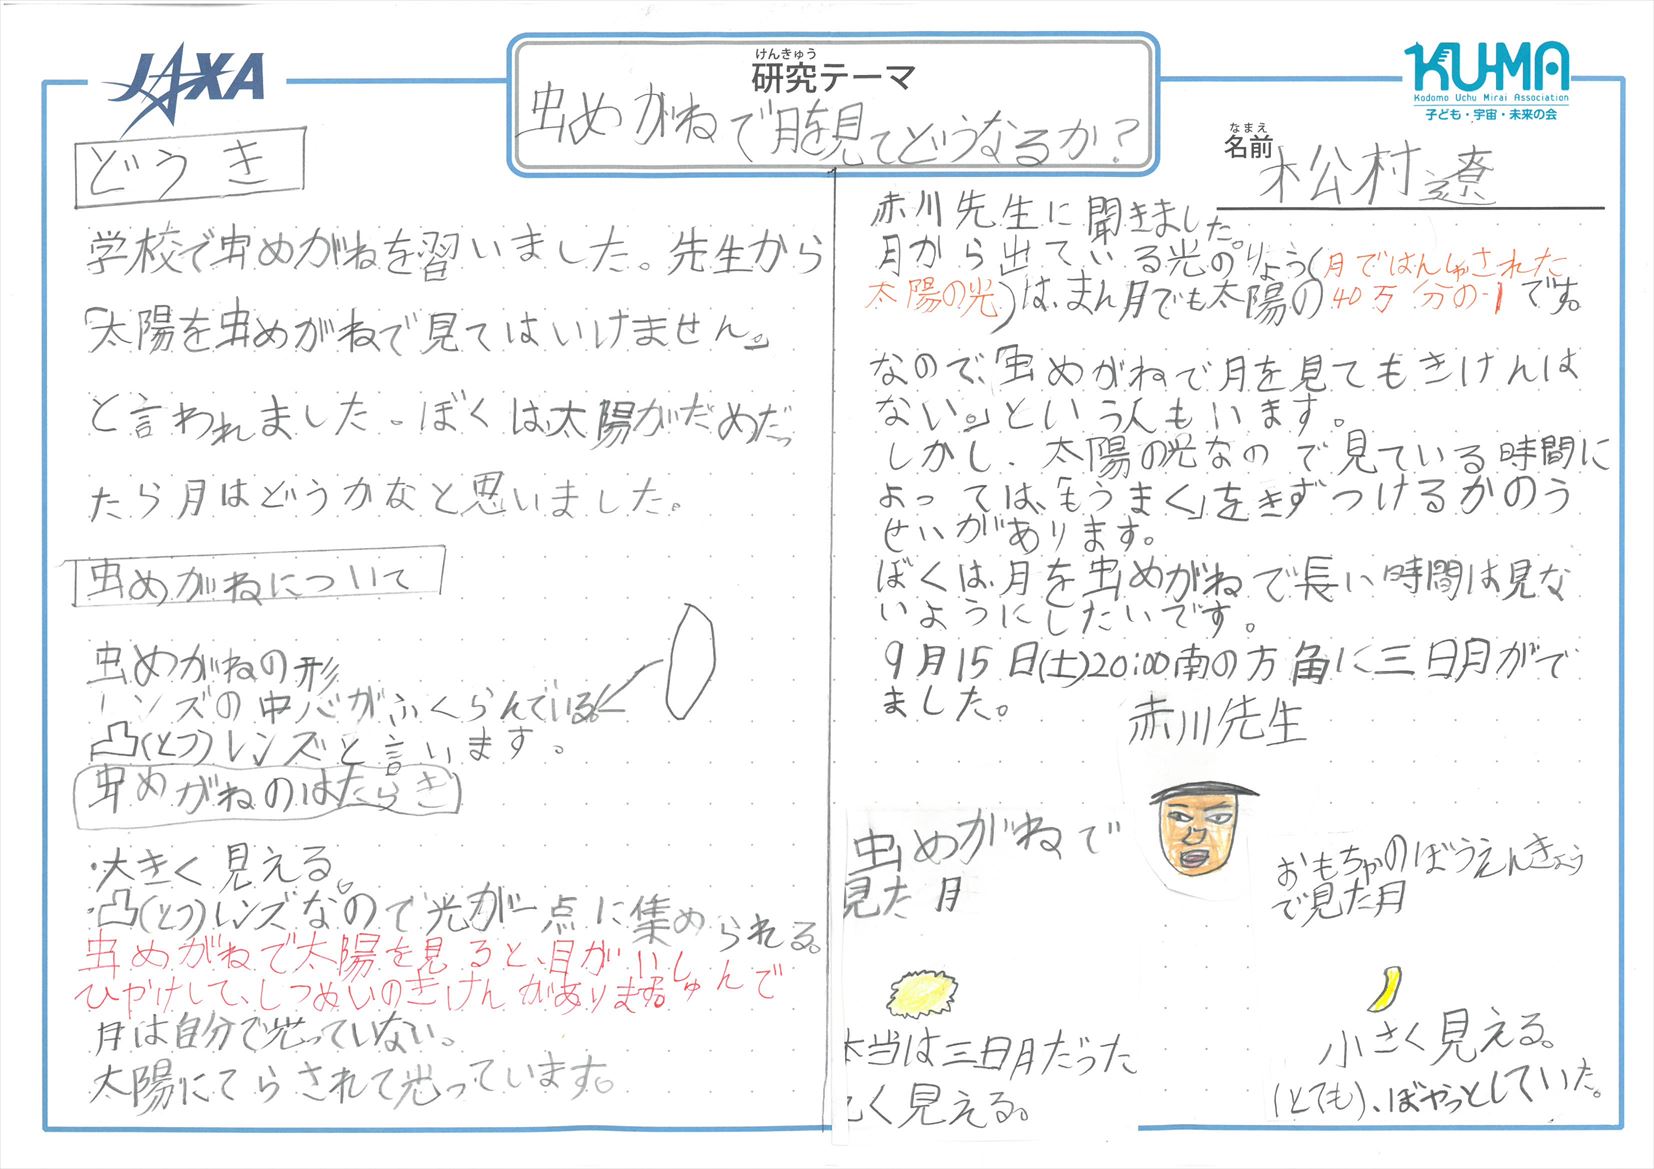 JAXA
けんきゅう
研究テーマ
虫めがねで月を見てどうなるか?
KU-MA
Kodomo Uchu Mirai Association
子ども・宇宙・未来の会
なまえ
名前
松村遼
どうき
学校で虫めがねを習いました。先生から
「太陽を虫めがねで見てはいけません。」
と言われました。ぼくは太陽がだめだっ
たら月はどうかなと思いました。
虫めがねについて
虫めがねの形
レンズの中心がふくらんでいる。
凸(とつ)レンズと言います。
虫めがねのはたらき
・大きく見える。
・凸(とつ)レンズなので光が一点に集められる。
虫めがねで太陽を見ると、目がいっしゅんで
ひやけして、しつめいのきけんがあります。
月は自分で光っていない。
太陽にてらされて光っています。
赤川先生に聞きました。
月から出ている光のりょう(月ではんしゃされた
太陽の光)は、まん月でも太陽の40万分の1です。
なので、「虫めがねで月を見てもきけんは
ない。」という人もいます。
しかし、太陽の光なので見ている時間に
よっては、「もうまく」をきずつけるかのう
せいがあります。
ぼくは、月を虫めがねで長い時間は見な
いようにしたいです。
9月15日(土)20:00南の方角に三日月がで
ました。
赤川先生
虫めがねで
見た月
本当は三日月だった
く見える。
おもちゃのぼうえんきょう
で見た月
小さく見える。
(とても)、ぼやっとしていた。